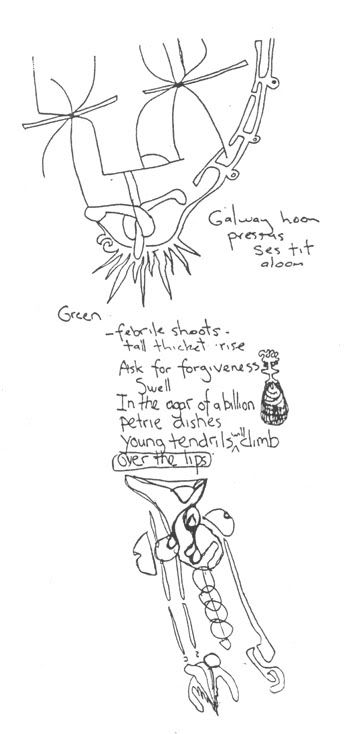 Galway hoon
pressas
ses tit
aloom
Green
-febrile shoots-
tall thicket rise
Ask for forgiveness
Swell
In the of a billion
petrie dishes
young tendrils will climb
over the lips